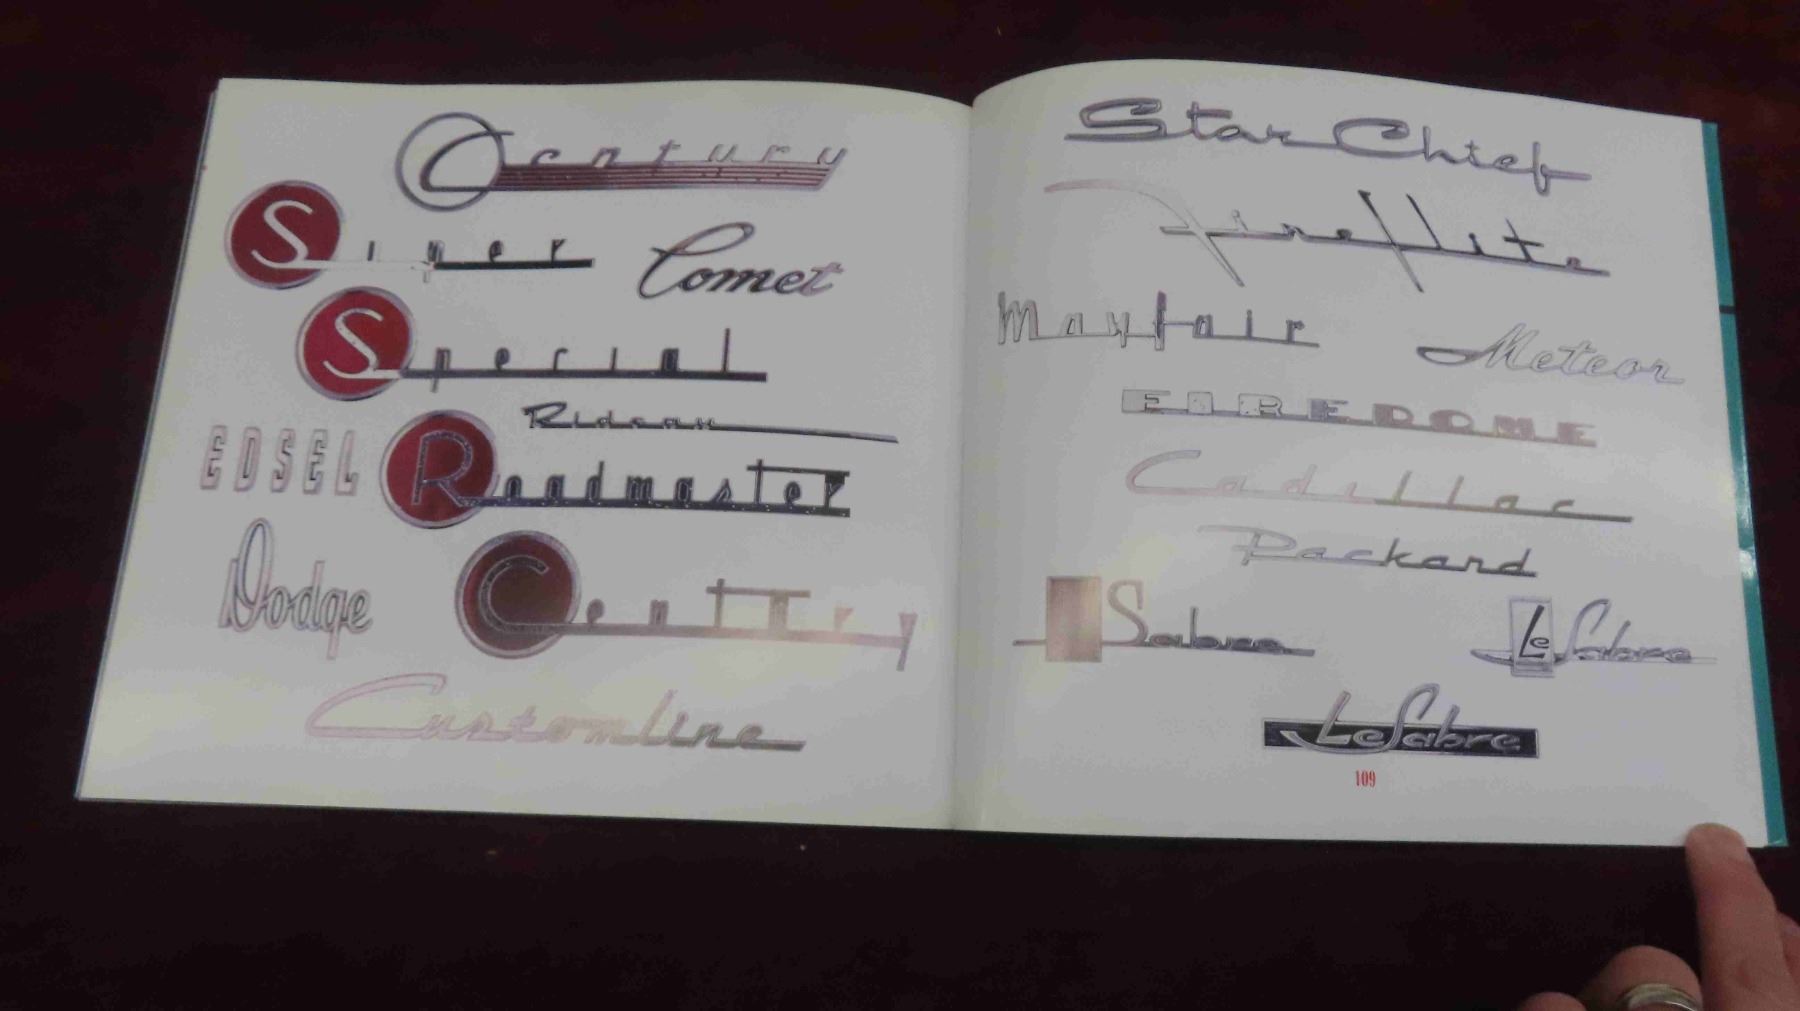 Century
Super
Comet
Special
Rideau
EDSEL
Roadmaster
Dodge
Century
Customline
Star Chief
Fireflite
Mayfair
Meteor
FIREDOME
Cadillac
Packard
Sabre
Le Sabre
LeSabre
109